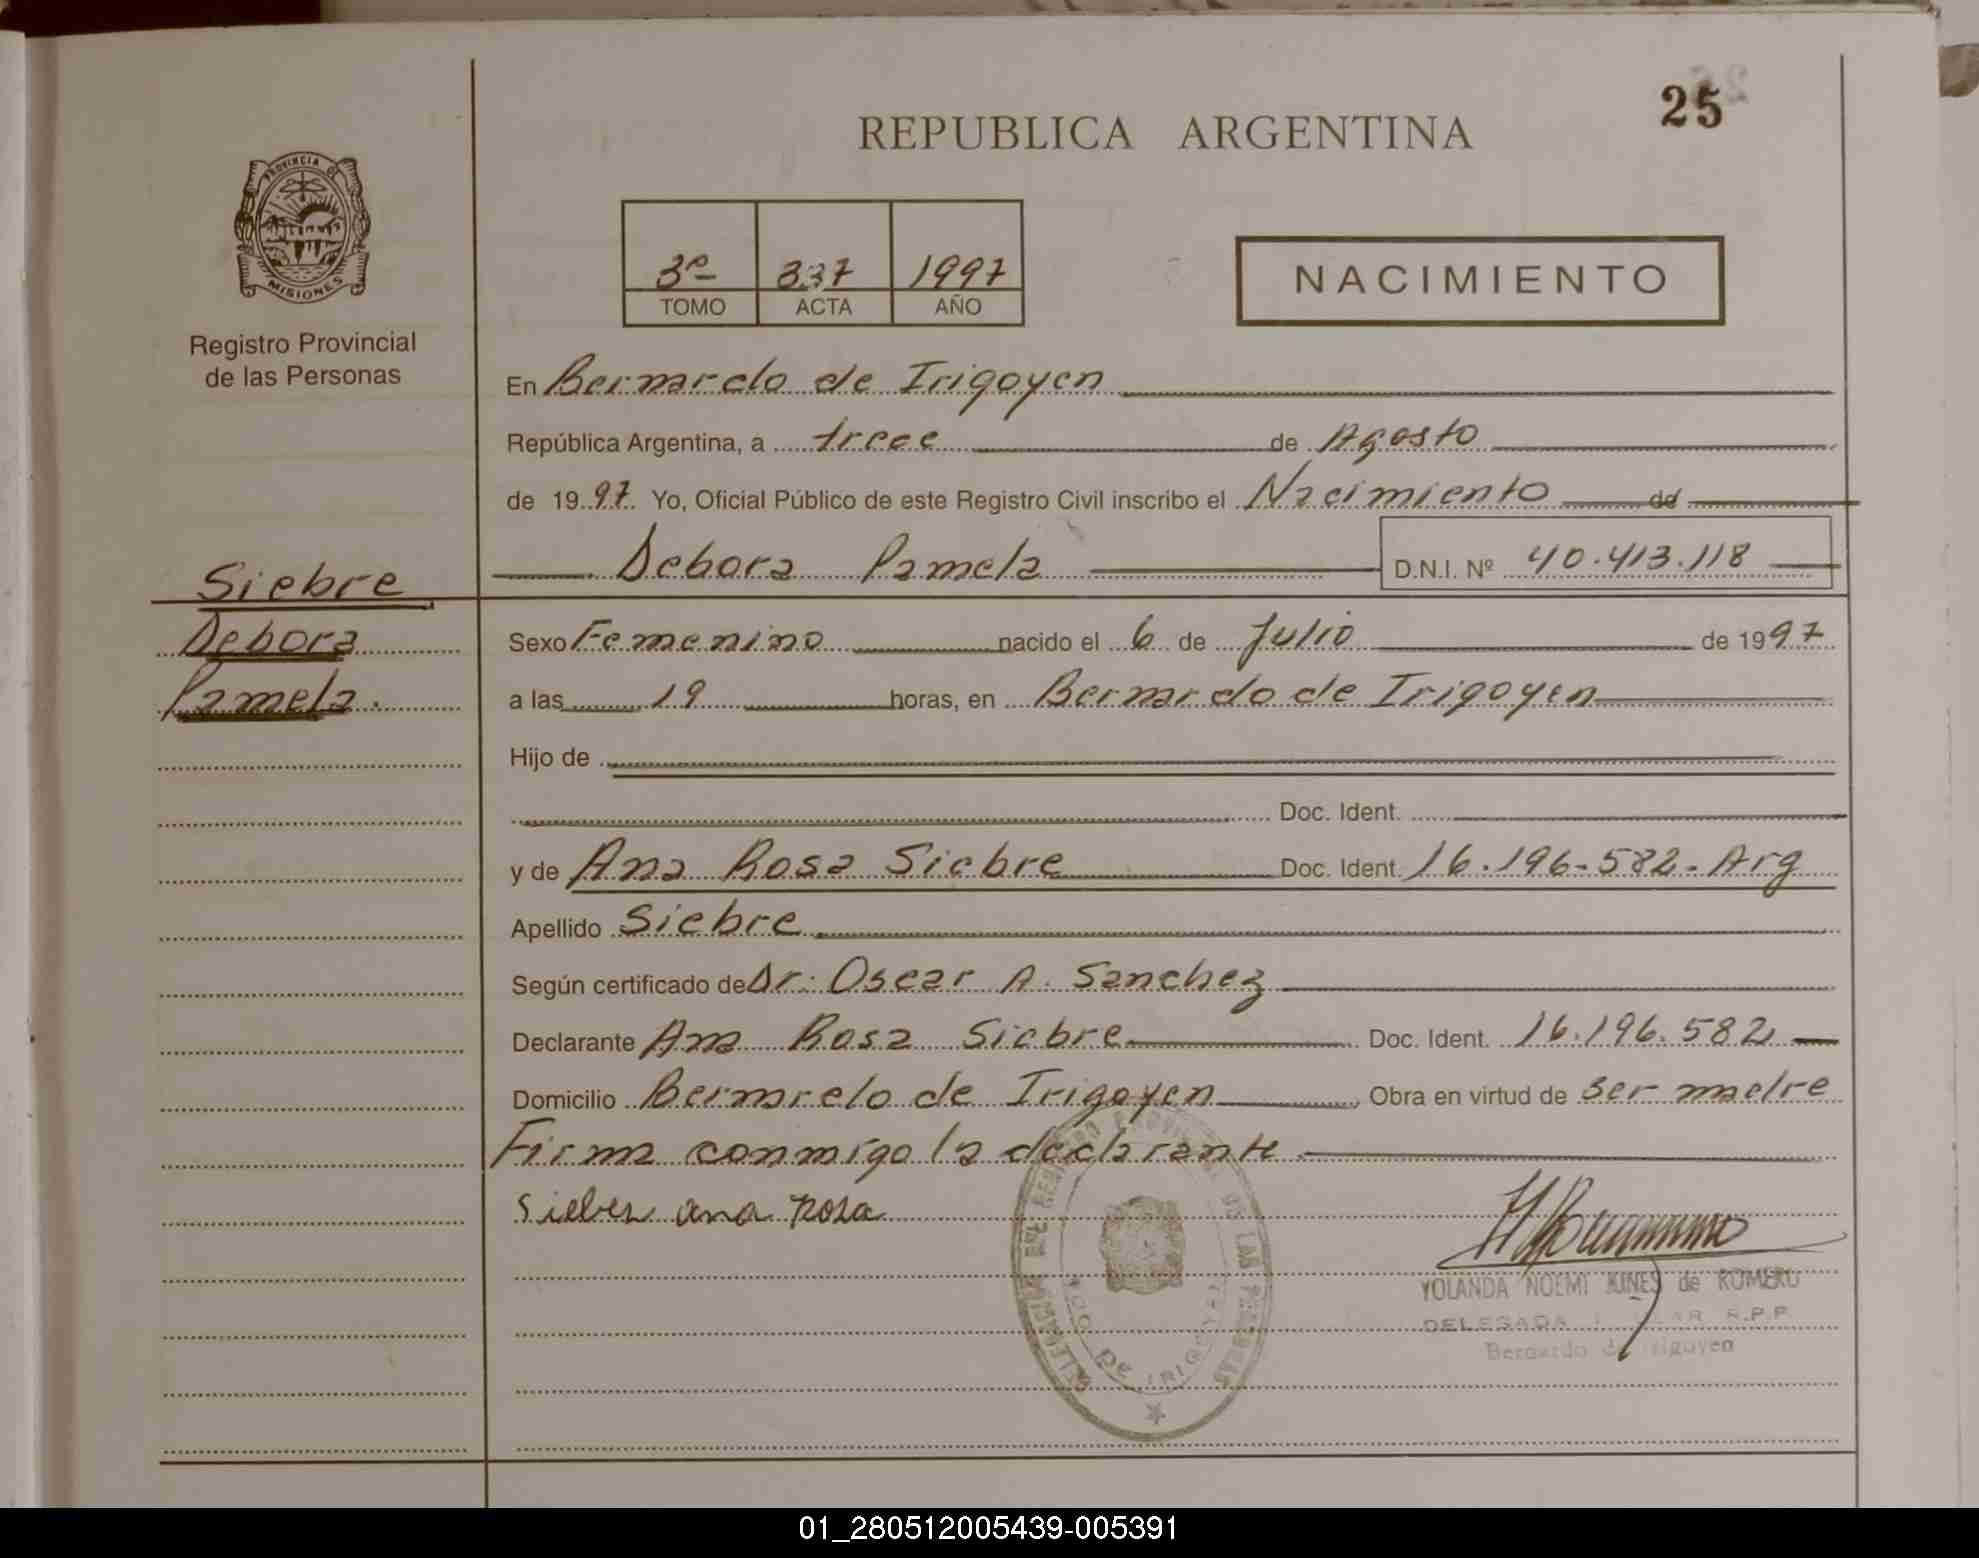 25
REPUBLICA ARGENTINA
PROVINCIA DE
MISIONES
Registro Provincial
de las Personas
3º 337 1997
TOMO ACTA AÑO
NACIMIENTO
En Bernardo de Irigoyen
República Argentina, a trece de Agosto
de 1997 Yo, Oficial Público de este Registro Civil inscribo el Nacimiento del
Debora Pamela D.N.I. Nº 40.413.118
Siebre
Debora
Pamela.
Sexo Femenino nacido el 6 de Julio de 1997
a las 19 horas, en Bernardo de Irigoyen
Hijo de
Doc. Ident.
y de Ana Rosa Siebre Doc. Ident. 16.196-582- Arg
Apellido Siebre
Según certificado de Dr. Oscar A. Sanchez
Declarante Ana Rosa Siebre Doc. Ident. 16.196.582
Domicilio Bernardo de Irigoyen Obra en virtud de ser madre
Firma conmigo la declarante
Sieber ana Rosa
YOLANDA NOEMI KINES de ROMERO
DELEGADA R.P.P.
Bernardo de Irigoyen
DE LAS PERSONAS
DE IRIGOYEN
01_280512005439-005391